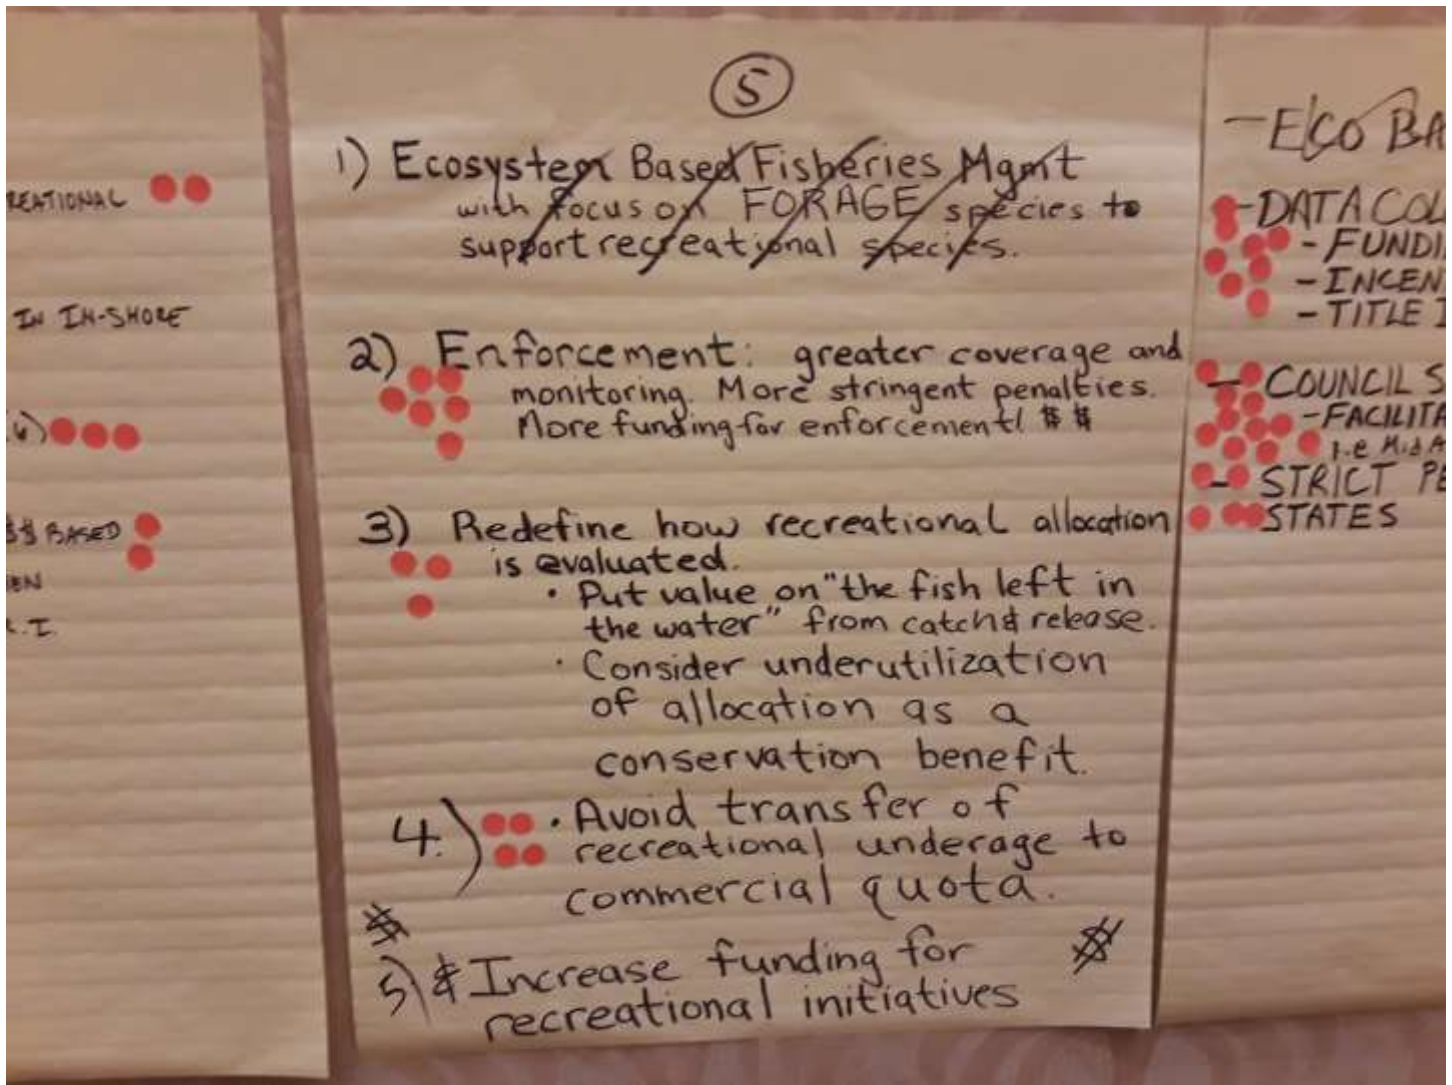 REATIONAL
IN IN-SHORE
$$ BASED
EN
R.I.
5
1) Ecosystem Based Fisheries Mgmt
with focus on FORAGE species to
support recreational species.
2) Enforcement: greater coverage and
monitoring. More stringent penalties.
More funding for enforcement! $ $
3) Redefine how recreational allocation
is evaluated.
• Put value on "the fish left in
the water" from catch & release.
• Consider underutilization
of allocation as a
conservation benefit.
4.) • Avoid transfer of
recreational underage to
commercial quota.
$
5) & Increase funding for $
recreational initiatives
- ECO BA
- DATA COL
- FUNDI
- INCEN
- TITLE I
- COUNCIL S
- FACILITA
i.e Mid A
- STRICT PE
STATES